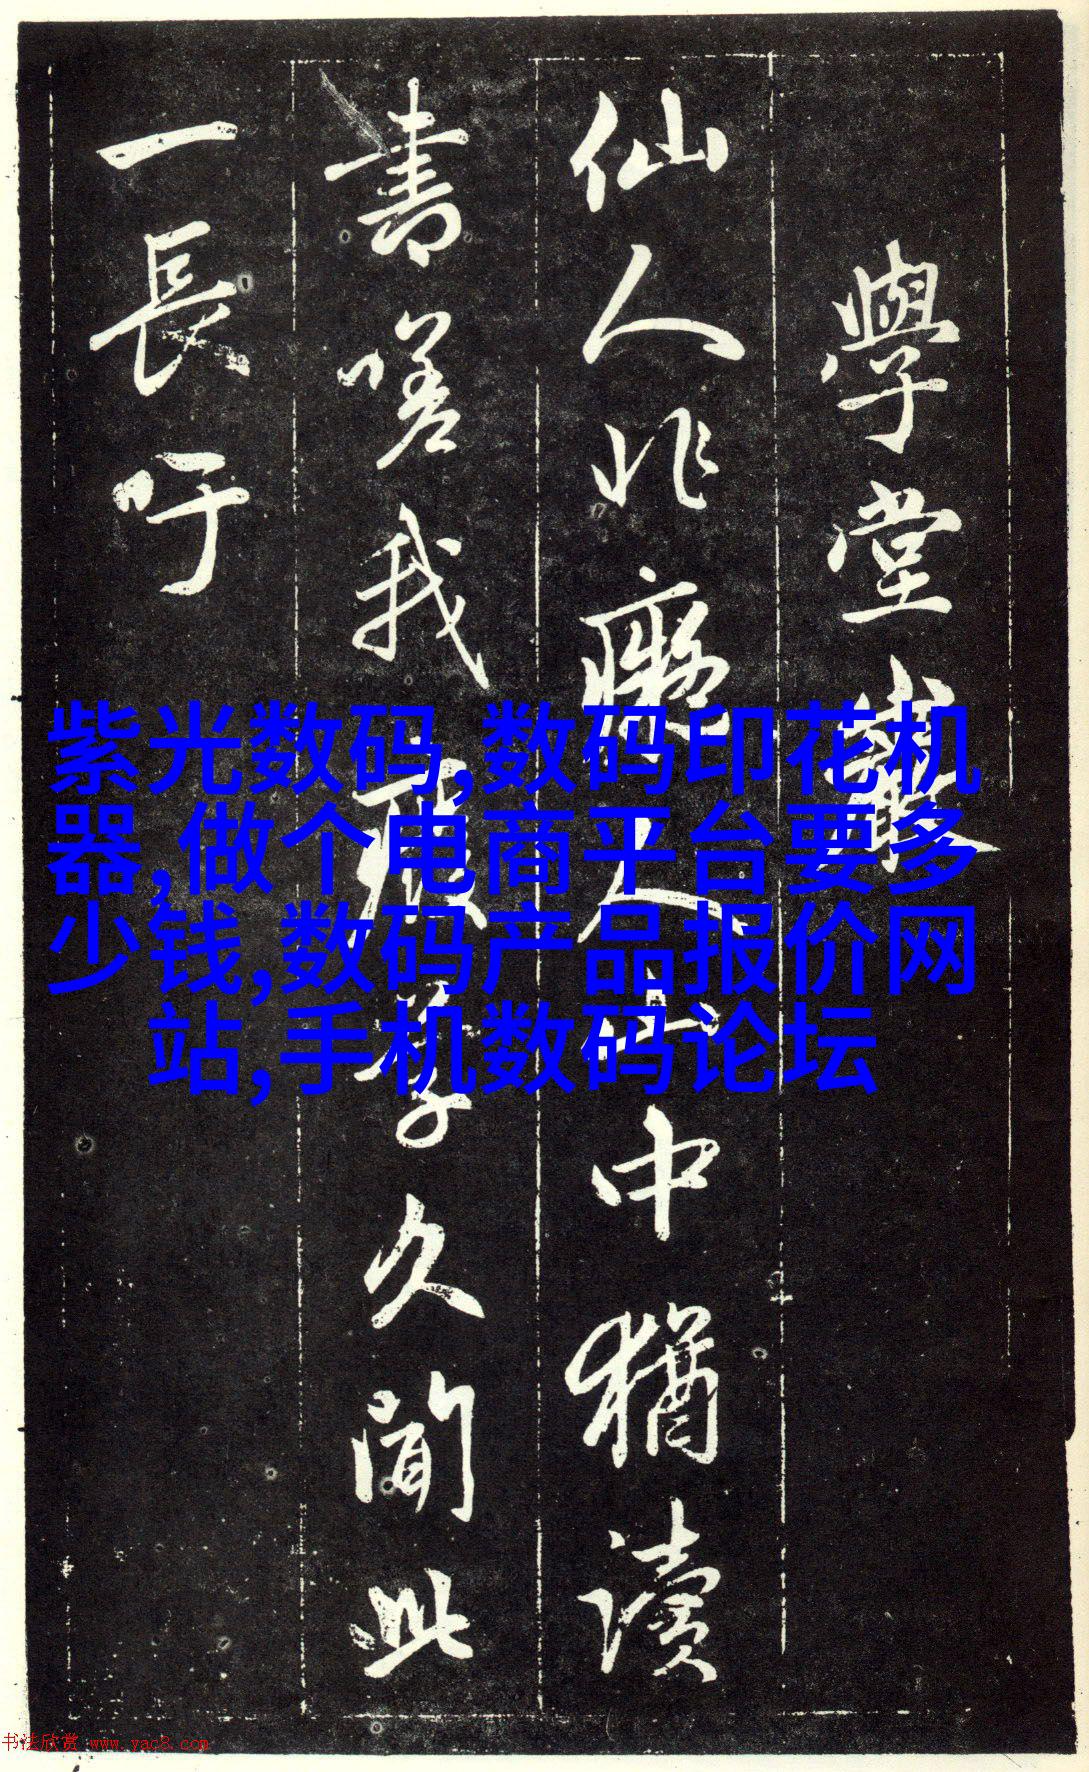 學堂巖
仙人非癡人山中猶讀
書嗟我廢學久聞此
一長吁
紫光数码,数码印花机
器,做个电商平台要多
少钱,数码产品报价网
站,手机数码论坛
书法欣赏 www.yac8.com